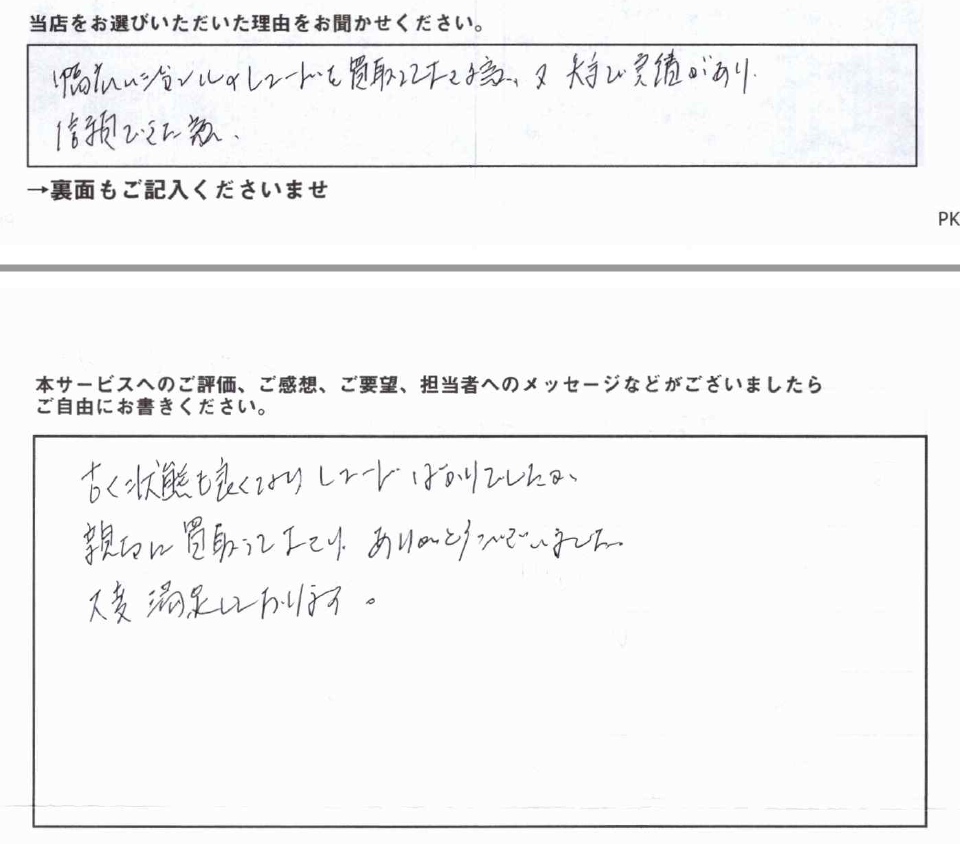 当店をお選びいただいた理由をお聞かせください。
幅広いジャンルのレコードを買取ってた為、又 大手で実績があり
信頼できた為、
→裏面もご記入くださいませ
PK
本サービスへのご評価、ご感想、ご要望、担当者へのメッセージなどがございましたら
ご自由にお書きください。
古く状態も良くない レコード ばかりでしたが、
親切に 買取って 下さり、ありがとうございました。
大変 満足しております。